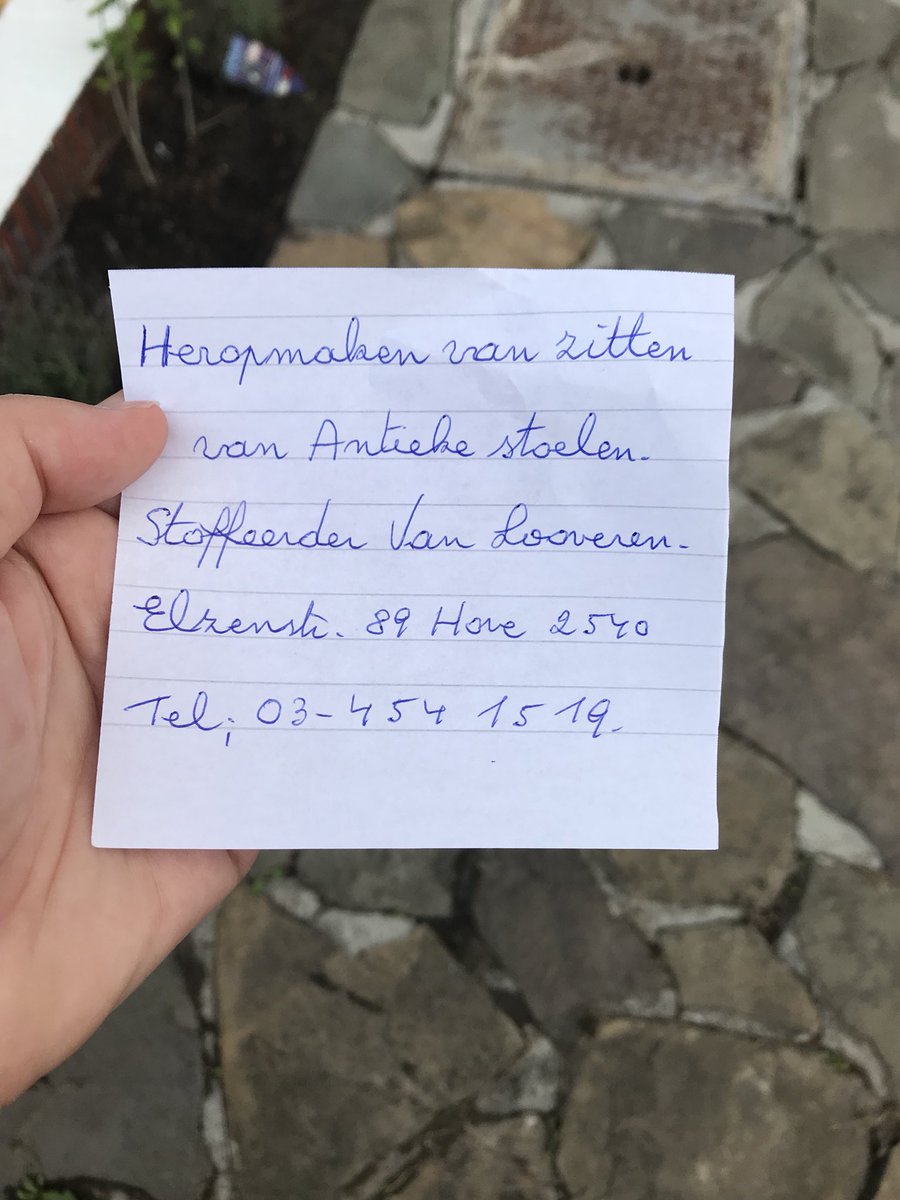 Heropmaken van zitten
van Antieke stoelen.
Stoffeerder Van Looveren.
Elzenstr. 89 Hove 2540
Tel; 03-454 1519.